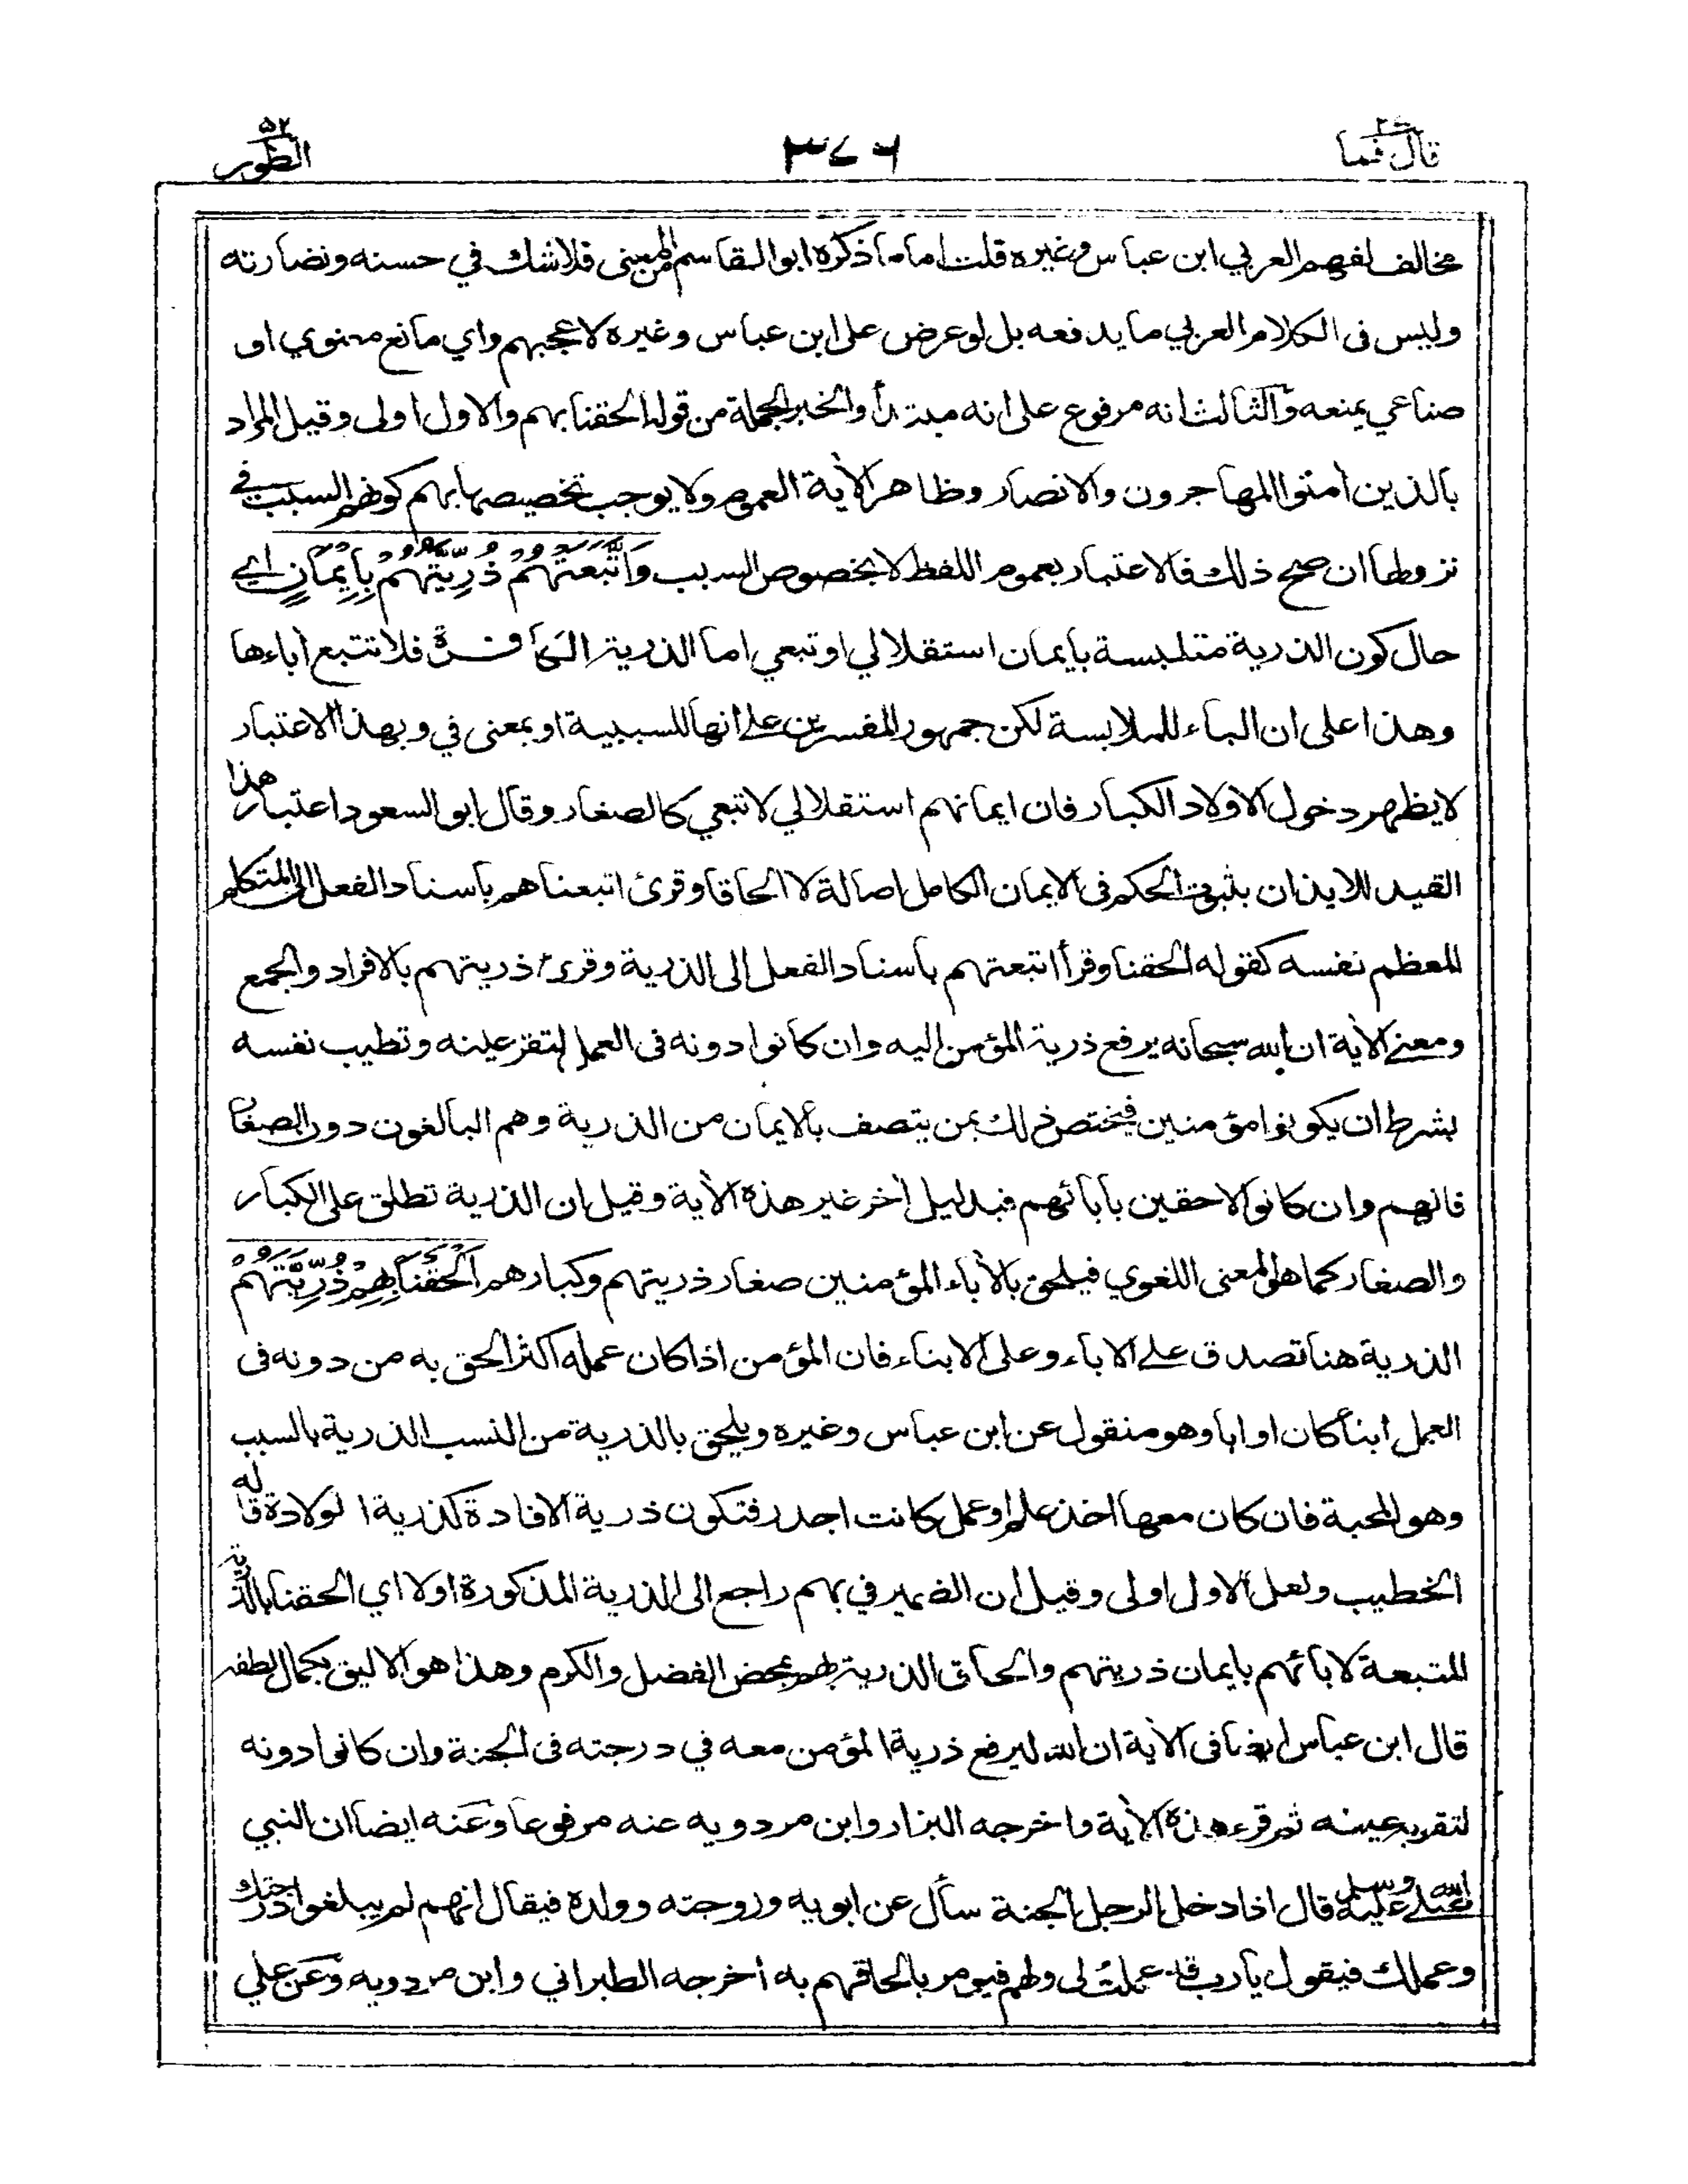 قال فما ٢٧
٣٧٦
الطور ٥٢
مخالف لفهم العربي ابن عباس وغيره قلت اما ما ذكره ابو القاسم من المعنى فلا شك في حسنه ونضارته
وليس فى الكلام العربي ما يدفعه بل لو عرض على ابن عباس وغيره لاعجبهم واي مانع معنوي او
صناعي يمنعه والثالث انه مرفوع على انه مبتدأ والخبر الجملة من قوله الحقنا بهم والاول اولى وقيل المراد
بالذين أمنوا المهاجرون والانصار وظاهر الأية العموم ولا يوجب تخصيصها بهم كونهم السبب في
نزولها ان صح ذلك فالاعتبار بعموم اللفظ لا بخصوص السبب وَاتَّبَعَتْهُمْ ذُرِّيَّتُهُمْ بِإِيْمَانٍ اي
حال كون الذرية متلبسة بايمان استقلالي او تبعي اما الذرية الكافرة فلا تتبع أباءها
وهذا على ان الباء للملابسة لكن جمهور المفسرين على انها للسببية او بمعنى في وبهذا الاعتبار
لا يظهر دخول الاولاد الكبار فان ايمانهم استقلالي لا تبعي كالصغار وقال ابو السعود اعتبار هذا
القيد للايذان بثبوت الحكم فى الايمان الكامل اصالة لا الحاقا وقرئ اتبعناهم باسناد الفعل الى المتكلم
المعظم نفسه كقوله الحقنا وقرأ اتبعتهم باسناد الفعل الى الذرية وقرئ ذريتهم بالافراد والجمع
ومعنى الأية ان الله سبحانه يرفع ذرية المؤمن اليه وان كانوا دونه فى العمل لتقر عينه وتطيب نفسه
بشرط ان يكونوا مؤمنين فيختص ذلك بمن يتصف بالايمان من الذرية وهم البالغون دون الصغار
فانهم وان كانوا لاحقين بأبائهم فبدليل أخر غير هذه الأية وقيل ان الذرية تطلق على الكبار
والصغار كما هو المعنى اللغوي فيلحق بالأباء المؤمنين صغار ذريتهم وكبارهم اَلْحَقْنَا بِهِمْ ذُرِّيَّتَهُمْ
الذرية هنا تصدق على الاباء وعلى الابناء فان المؤمن اذا كان عمله اكثر الحق به من دونه فى
العمل ابنا كان او ابا وهو منقول عن ابن عباس وغيره ويلحق بالذرية من النسب الذرية بالسبب
وهو المحبة فان كان معها اخذ علم او عمل كانت اجدر فتكون ذرية الافادة كذرية الولادة قاله
الخطيب ولعل الاول اولى وقيل ان الضمير في بهم راجع الى الذرية المذكورة اولا اي الحقنا بالذرية
المتبعة لابائهم بايمان ذريتهم والحاق الذرية بهم بمحض الفضل والكرم وهذا هو الاليق بكمال لطفه
قال ابن عباس ايضا فى الأية ان الله ليرفع ذرية المؤمن معه في درجته فى الجنة وان كانوا دونه
لتقر به عينه ثم قرء هذه الأية واخرجه البزار وابن مردويه عنه مرفوعا وعنه ايضا ان النبي
صلى الله عليه وسلم قال اذا دخل الرجل الجنة سأل عن ابويه وزوجته وولده فيقال انهم لم يبلغوا درجتك
وعملك فيقول يا رب قد عملت لى ولهم فيومر بالحاقهم به أخرجه الطبراني وابن مردويه وعن علي